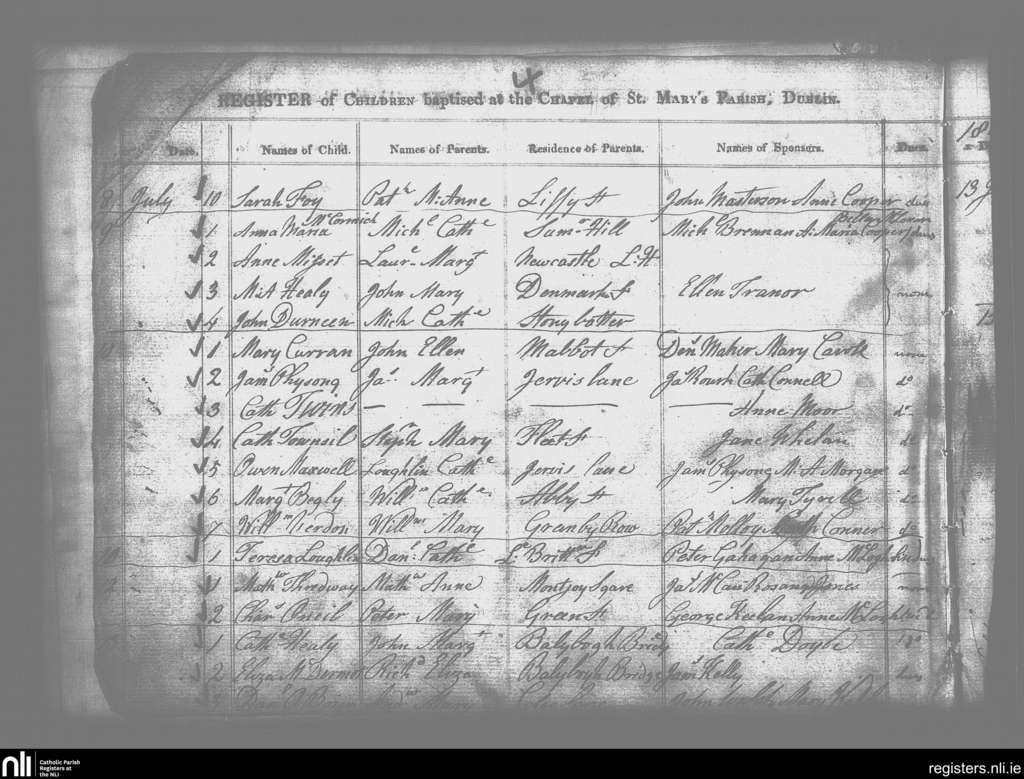 4
REGISTER of CHILDREN baptised at the CHAPEL of St. MARY'S PARISH, DUBLIN.
Date. Names of Child. Names of Parents. Residence of Parents. Names of Sponsors. Dues.
18
8 July 10 Sarah Foy Patk M: Anne Liffy St John Masterson Annie Cooper due
13 J
9 1 Anna Maria McCormick Michl Cathe Sumr Hill Mich Brennan Maria Cooper
2 Anne Misset Laure Margt Newcastle
3 Healy John Mary Denmark St Ellen Tranor none
4 John Durneen Mich Cathe Stonybatter
10 1 Mary Curran John Ellen Mabbot St Dens Maher Mary Caroll none
2 Jams Physong Jas Margt Jervis lane Jas Rourk Cath Connell do
3 Cath Twins — — — — Anne Moor do
4 Cath Townsil Steph Mary Fleet St Jane Whelan do
5 Owen Maxwell Loughlin Cathe Jervis lane Jams Physong M. A Morgan do
6 Margt Begly Willm Cathe Abby St Mary Tyrell do
7 Willm Verdon Willm Mary Granby Row Patk Molloy Conner do
11 1 Teresa Loughlin Danl Cathe Lt Brittn St Peter Gahagan Anne
12 1 Mathw Mathw Anne Montjoy Sqare Jas McCan Rosanna Jones none
2 Chars Oneil Peter Mary Green St George Keelan Anne
1 Cathe Healy John Margt Balybogh Bridg Cathe Doyle do
2 Eliza McDermot Richd Eliza Balybogh Bridge Jams Kelly
3 Mary John Mary
nli Catholic Parish
Registers at
the NLI
registers.nli.ie